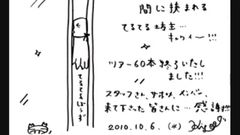 間に挟まれる
てるてる坊主…
キャウィー!!!
ツアー60本終了いたし
ました!!!
スタッフさん、メンバー、
来て下さった皆さんに…感謝!!!
2010.10.6. (水)
てるてるぼーず